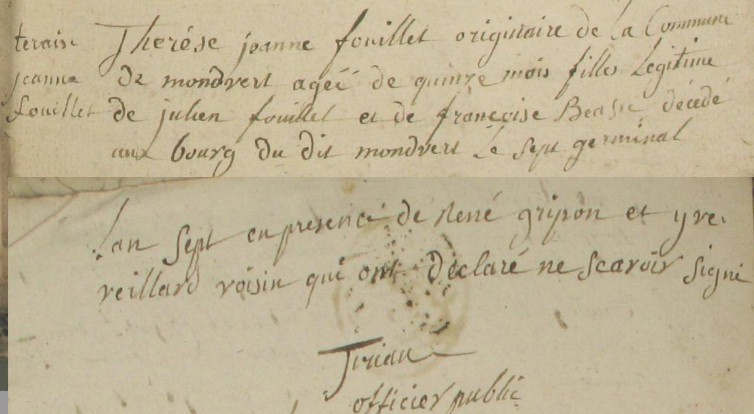 teraise
jeanne
fouillet
Therése joanne fouillet originaire de la Commune
de mondvert ageé de quinze mois filles Legitime
de julien fouillet et de françoise décédé
aux bourg du dit mondvert le sept germinal
Lan sept en presence de René gripon et yve
reillard voisin qui ont declaré ne scavoir signé
officier public